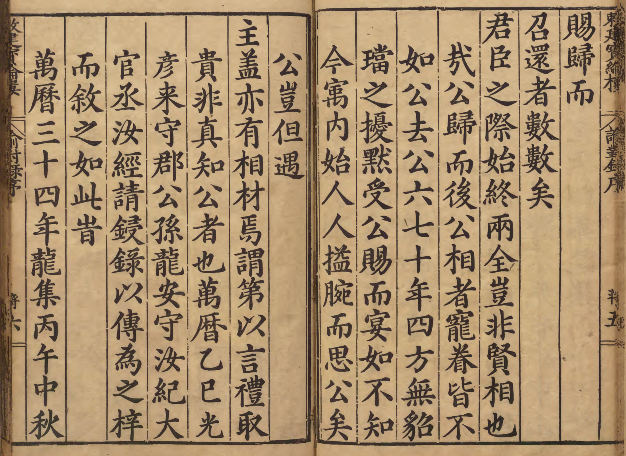 賜歸而
召還者數數矣
君臣之際始終兩全豈非賢相也
㦲公歸而後公相者寵眷皆不
如公去公六七十年四方無貂
璫之擾默受公賜而宴如不知
今㝢內始人人搤腕而思公矣
公豈但遇
主盖亦有相材焉謂第以言禮取
貴非真知公者也萬曆乙巳光
彥来守郡公孫龍安守汝紀大
官丞汝經請鋟錄以傳為之梓
而敘之如此旹
萬曆三十四年龍集丙午中秋